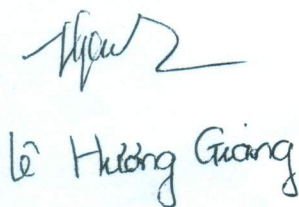 Lê Hương Giang